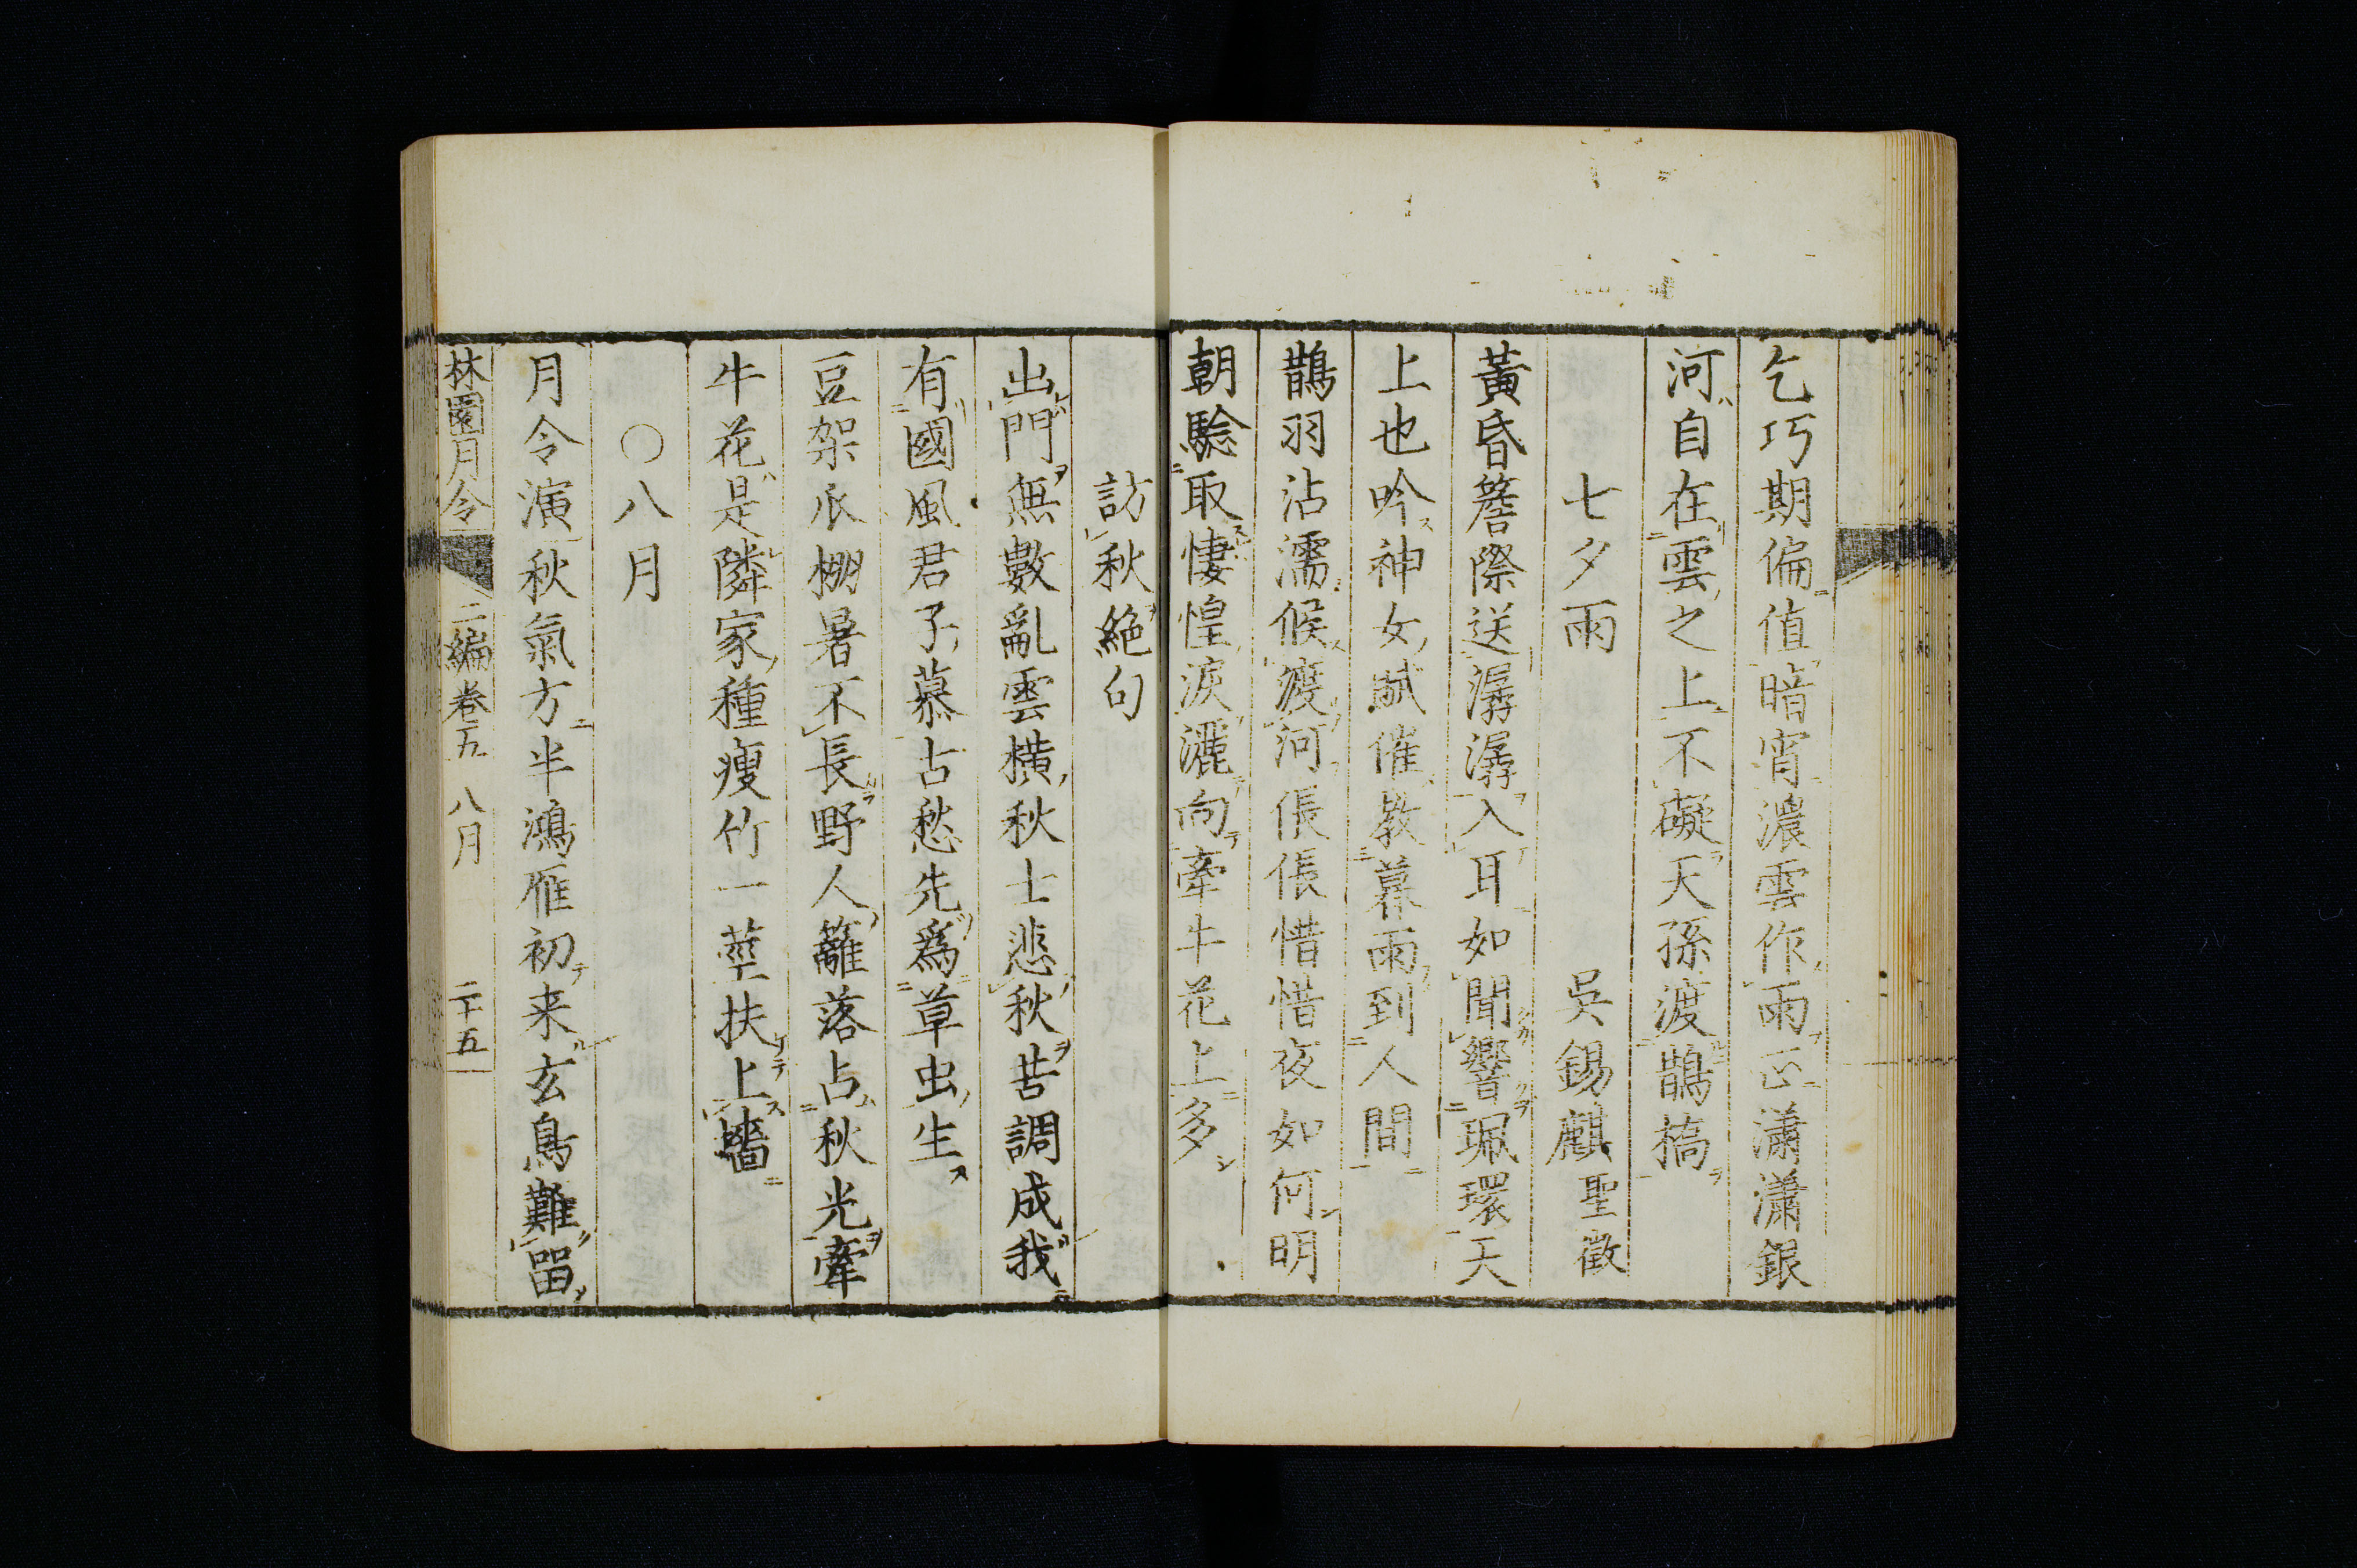 乞巧期偏値暗宵濃雲作雨正瀟瀟銀
河自在雲之上不礙天孫渡鵲橋
七夕雨 吳錫麒聖徵
黃昏簷際送潺潺入耳如聞響珮環天
上也吟神女賦催敎暮雨到人間
鵲羽沾濡候渡河倀倀惜惜夜如何明
朝驗取悽惶淚灑向牽牛花上多
訪秋絕句
出門無數亂雲橫秋士悲秋苦調成我
有國風君子慕古愁先爲草虫生
豆架瓜棚暑不長野人籬落占秋光牽
牛花是隣家種瘦竹一莖扶上牆
〇八月
月令演秋氣方半鴻雁初来玄鳥難畱
林園月令 二編卷五 八月 二十五